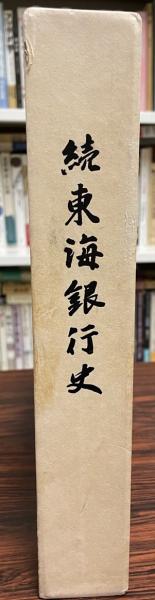 続東海銀行史